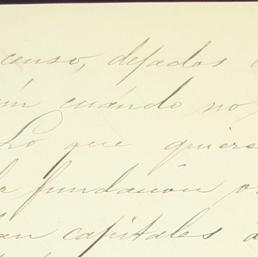 censo, dejados
ún cuándo no
Lo que quiere
fundación
an capitales á